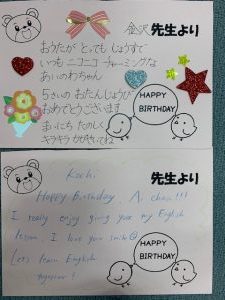 金沢 先生より
おうたが とっても じょうずで
いつも ニコニコ チャーミングな
あいのわちゃん
5さいの おたんじょうび
おめでとうございます
まいにち たのしく
キラキラ かがやいてね
HAPPY
BIRTHDAY
先生より
Kochi.
Happy Birthday, Ai chan!!!
I really enjoy giving you my English
lesson. I love your smile
Let's learn English
together!
HAPPY
BIRTHDAY